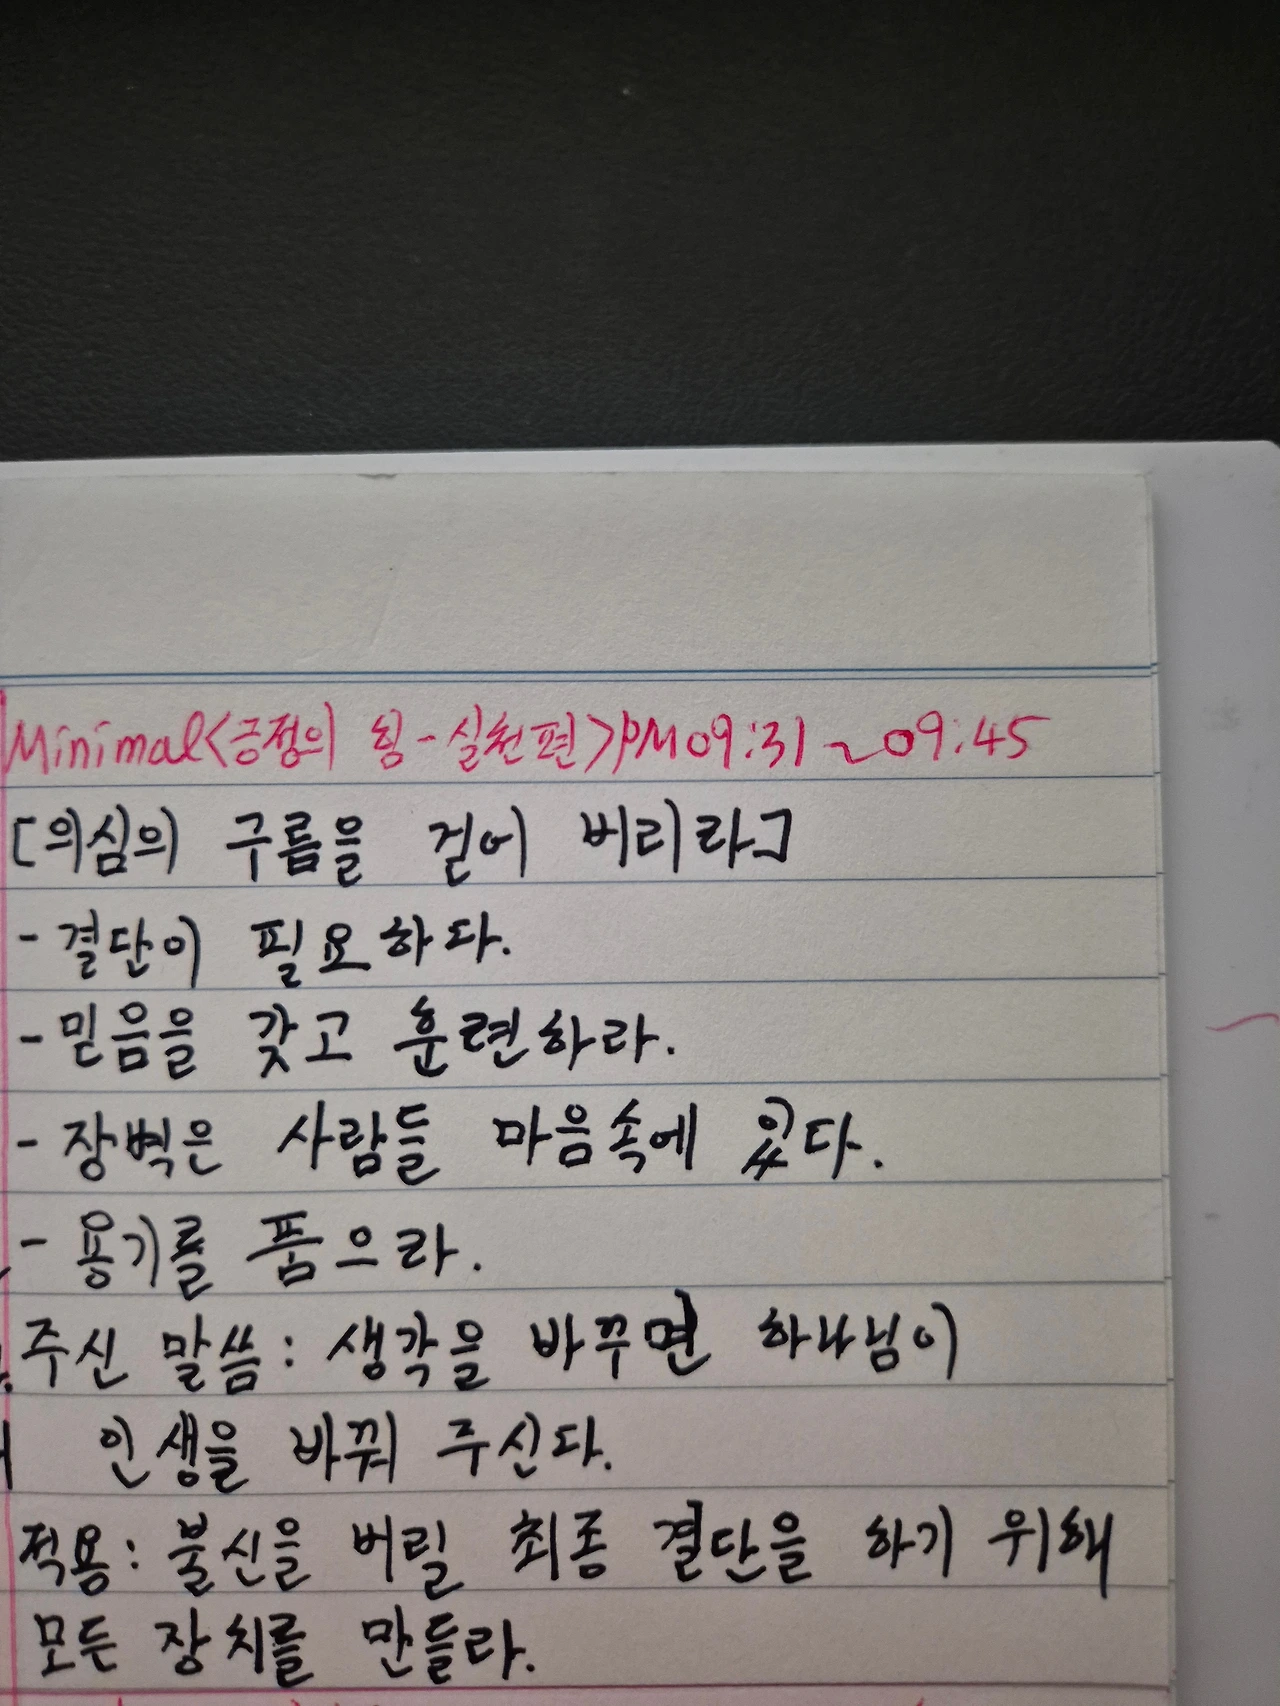 Minimal<긍정의 힘-실천편>PM09:31~09:45
[의심의 구름을 걷어 버리라]
-결단이 필요하다.
-믿음을 갖고 훈련하라.
-장벽은 사람들 마음속에 있다.
-용기를 품으라.
주신 말씀: 생각을 바꾸면 하나님이
인생을 바꿔 주신다.
적용: 불신을 버릴 최종 결단을 하기 위해
모든 장치를 만들라.